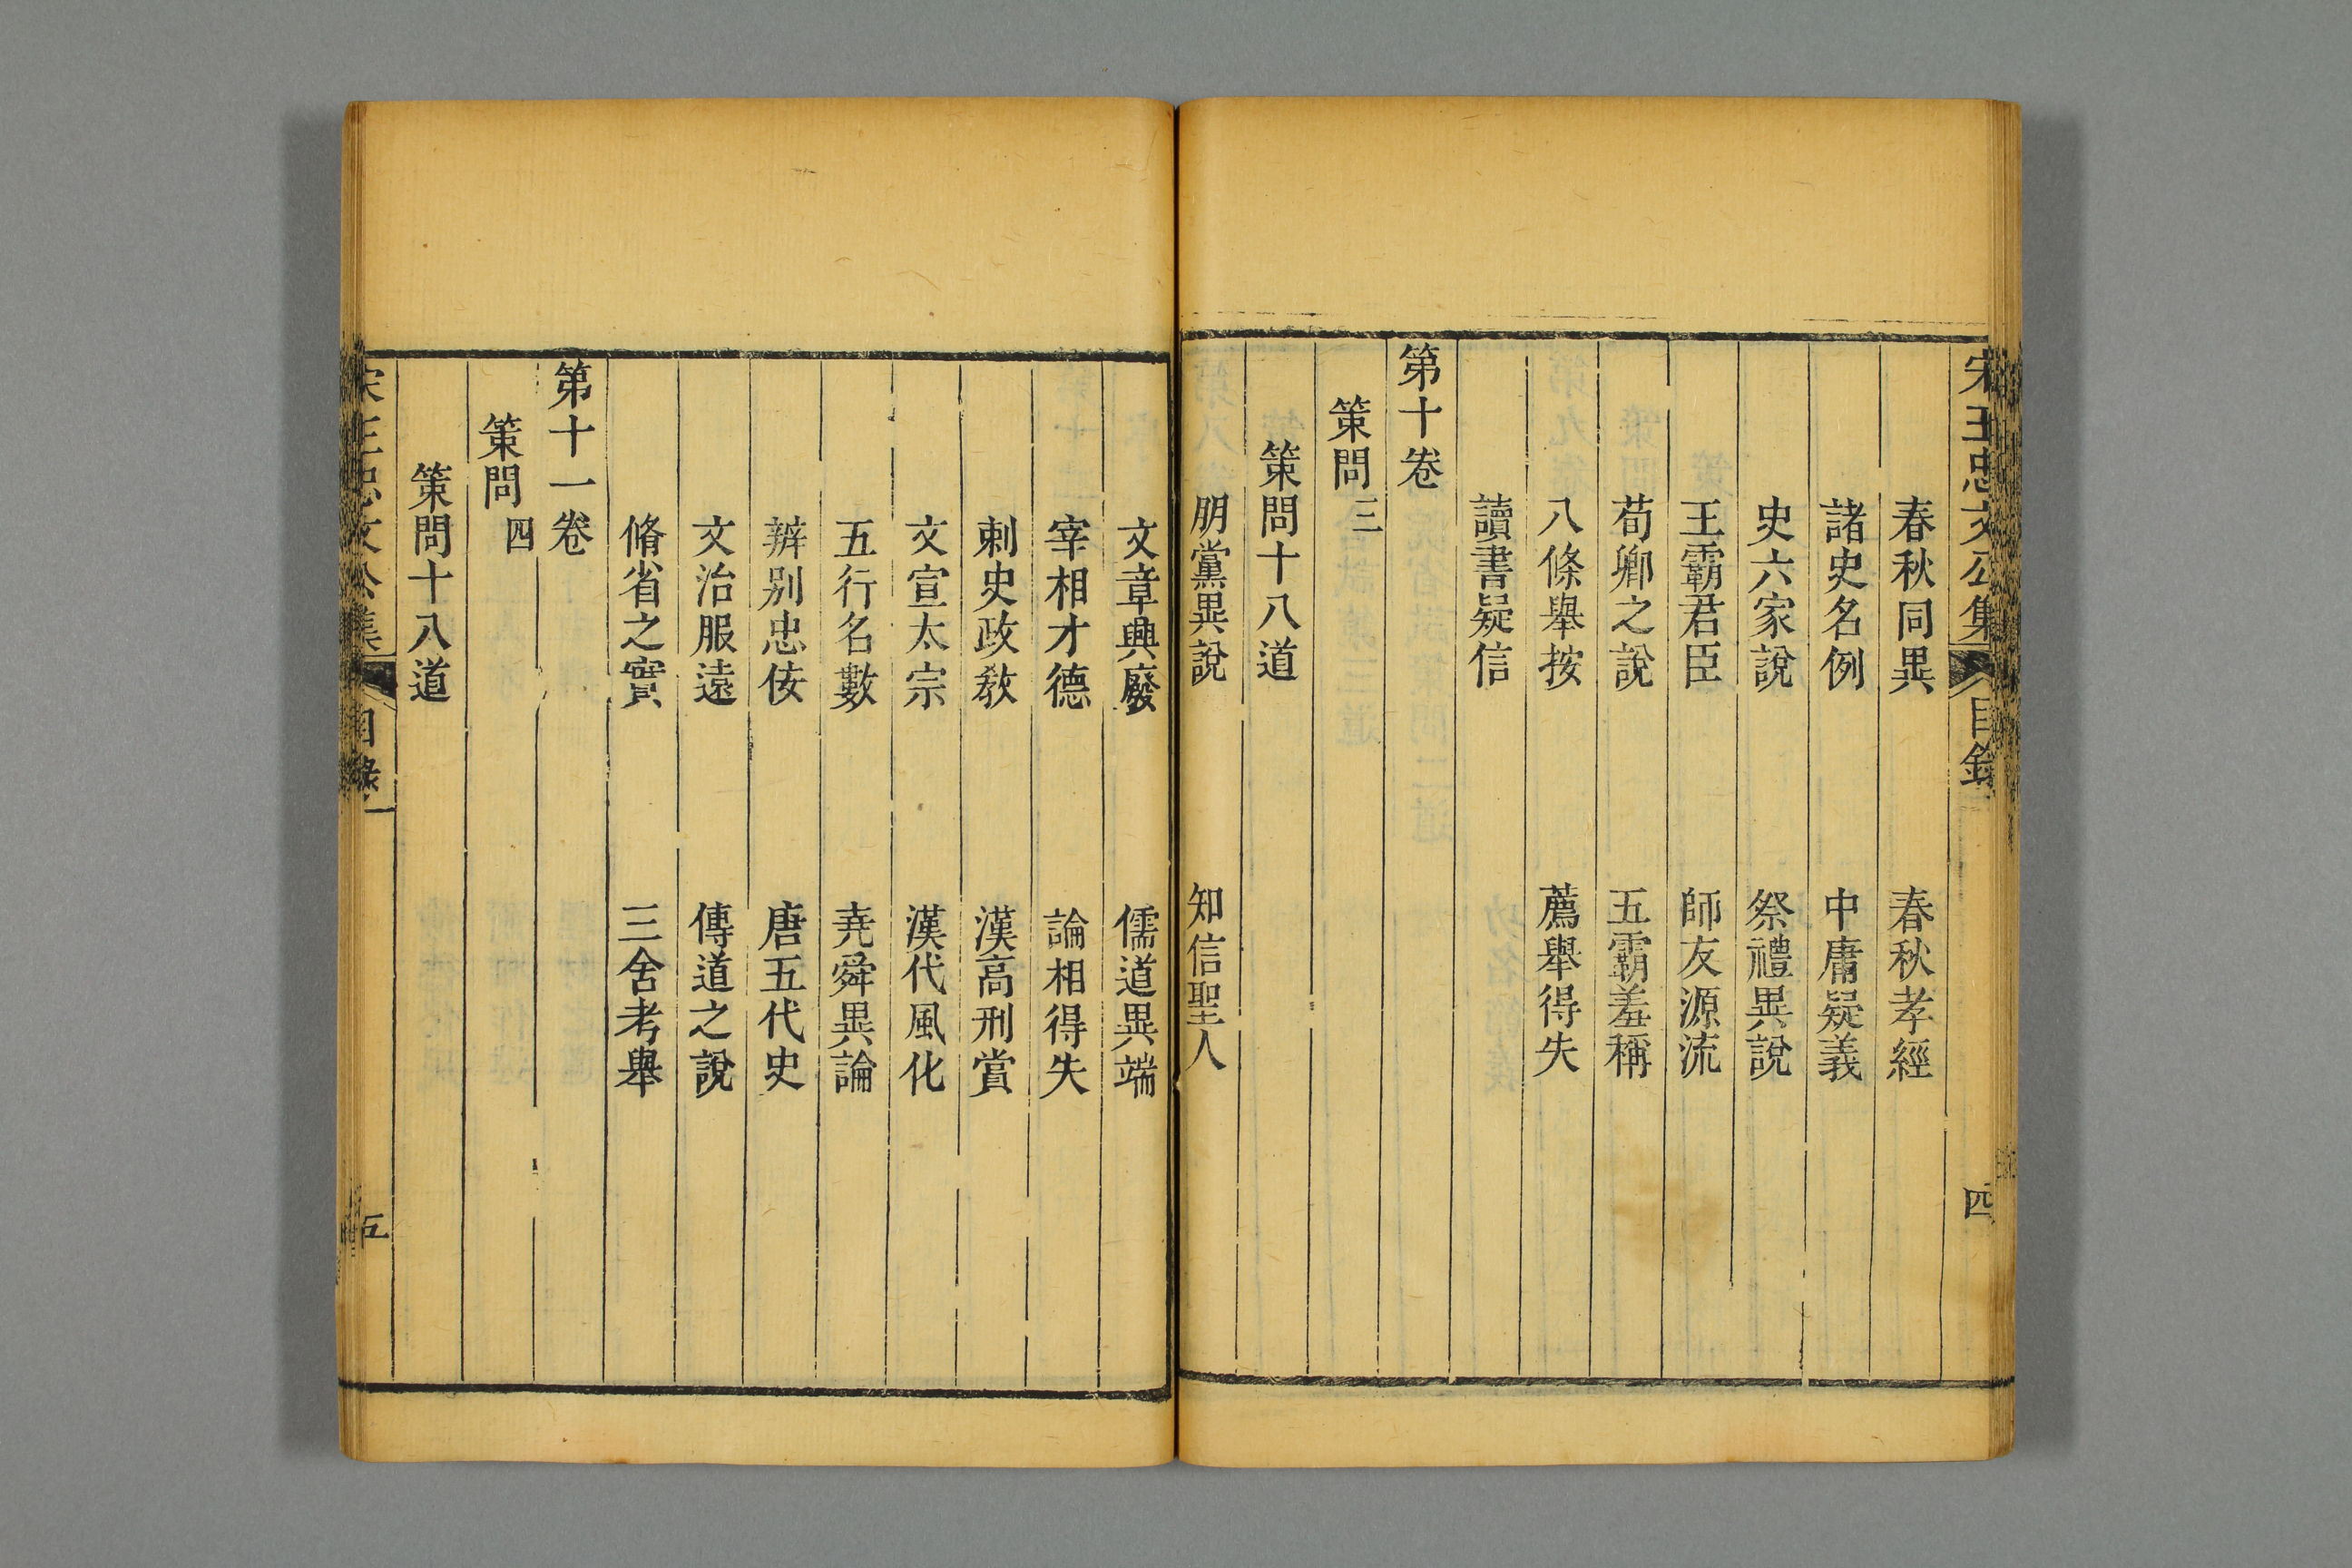 宋王忠文公集 目錄 四
春秋同異 春秋孝經
諸史名例 中庸疑義
史六家說 祭禮異說
王霸君臣 師友源流
荀卿之說 五霸羞稱
八條舉按 薦舉得失
讀書疑信
第十卷
策問三
策問十八道
朋黨異說 知信聖人
文章興廢 儒道異端
宰相才德 論相得失
刺史政敎 漢高刑賞
文宣太宗 漢代風化
五行名數 堯舜異論
辨别忠佞 唐五代史
文治服遠 傳道之說
脩省之實 三舍考舉
第十一卷
策問四
策問十八道
宋王忠文公集 目錄 五